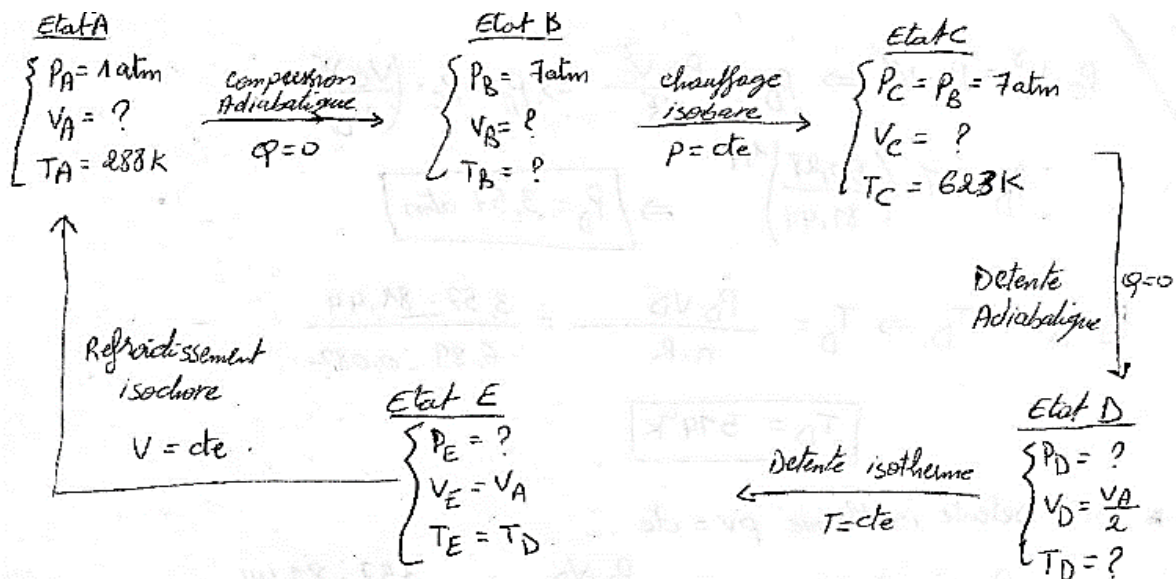 Etat A
P_A = 1 atm
V_A = ?
T_A = 288 K
Compression
Adiabatique
Q=0
Etat B
P_B = 7 atm
V_B = ?
T_B = ?
chauffage
isobare
P = cte
Etat C
P_C = P_B = 7 atm
V_C = ?
T_C = 623 K
Detente
Adiabatique
Q=0
Etat D
P_D = ?
V_D = V_A/2
T_D = ?
Detente isotherme
T=cte
Etat E
P_E = ?
V_E = V_A
T_E = T_D
Refroidissement
isochore
V = cte.